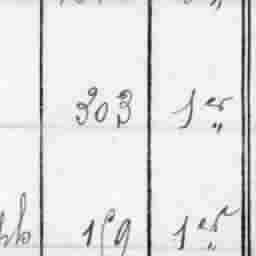 303 1er „
159 1er „